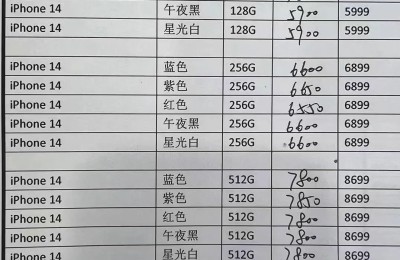 iPhone 14 午夜黑 128G 5900 5999
iPhone 14 星光白 128G 5900 5999
iPhone 14 蓝色 256G 6600 6899
iPhone 14 紫色 256G 6650 6899
iPhone 14 红色 256G 6550 6899
iPhone 14 午夜黑 256G 6600 6899
iPhone 14 星光白 256G 6600 6899
iPhone 14 蓝色 512G 7800 8699
iPhone 14 紫色 512G 7850 8699
iPhone 14 红色 512G 7800 8699
iPhone 14 午夜黑 512G 7800 8699
iPhone 14 星光白 512G 7800 8699